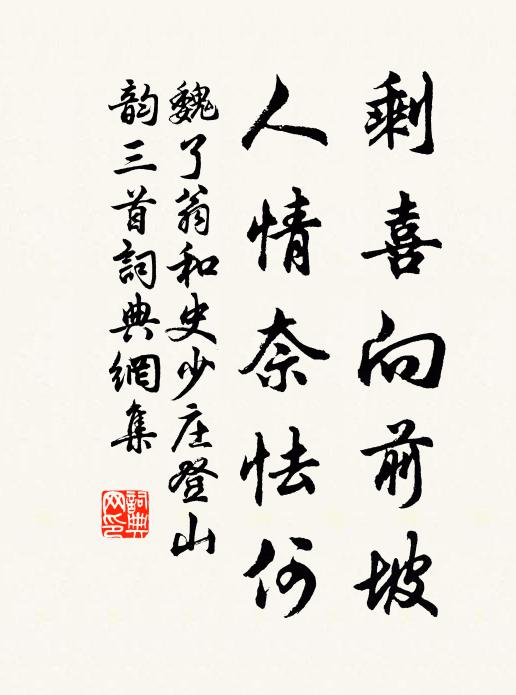 剩喜向前坡
人情奈怯何
魏了翁和史少庄登山
韵三首詞典網集
詞典
网印